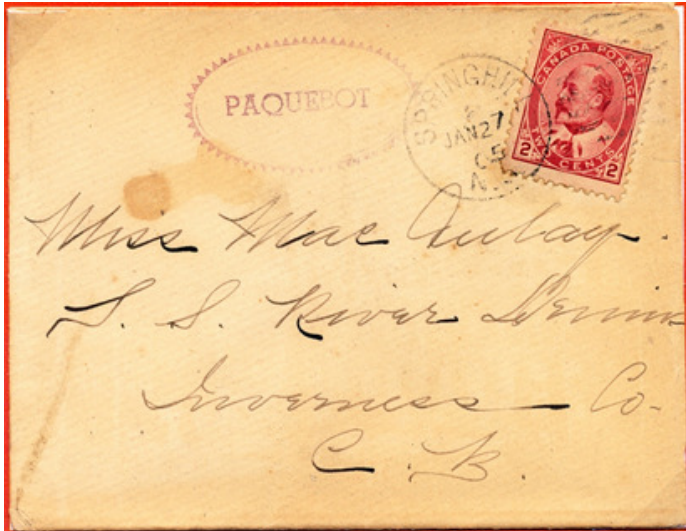 PAQUEBOT
SPRINGHILL
JAN 27
05
N.S.
CANADA POSTAGE
2 TWO CENTS 2
Miss MacAulay.
S. S. River Dennis
Inverness Co.
C. B.